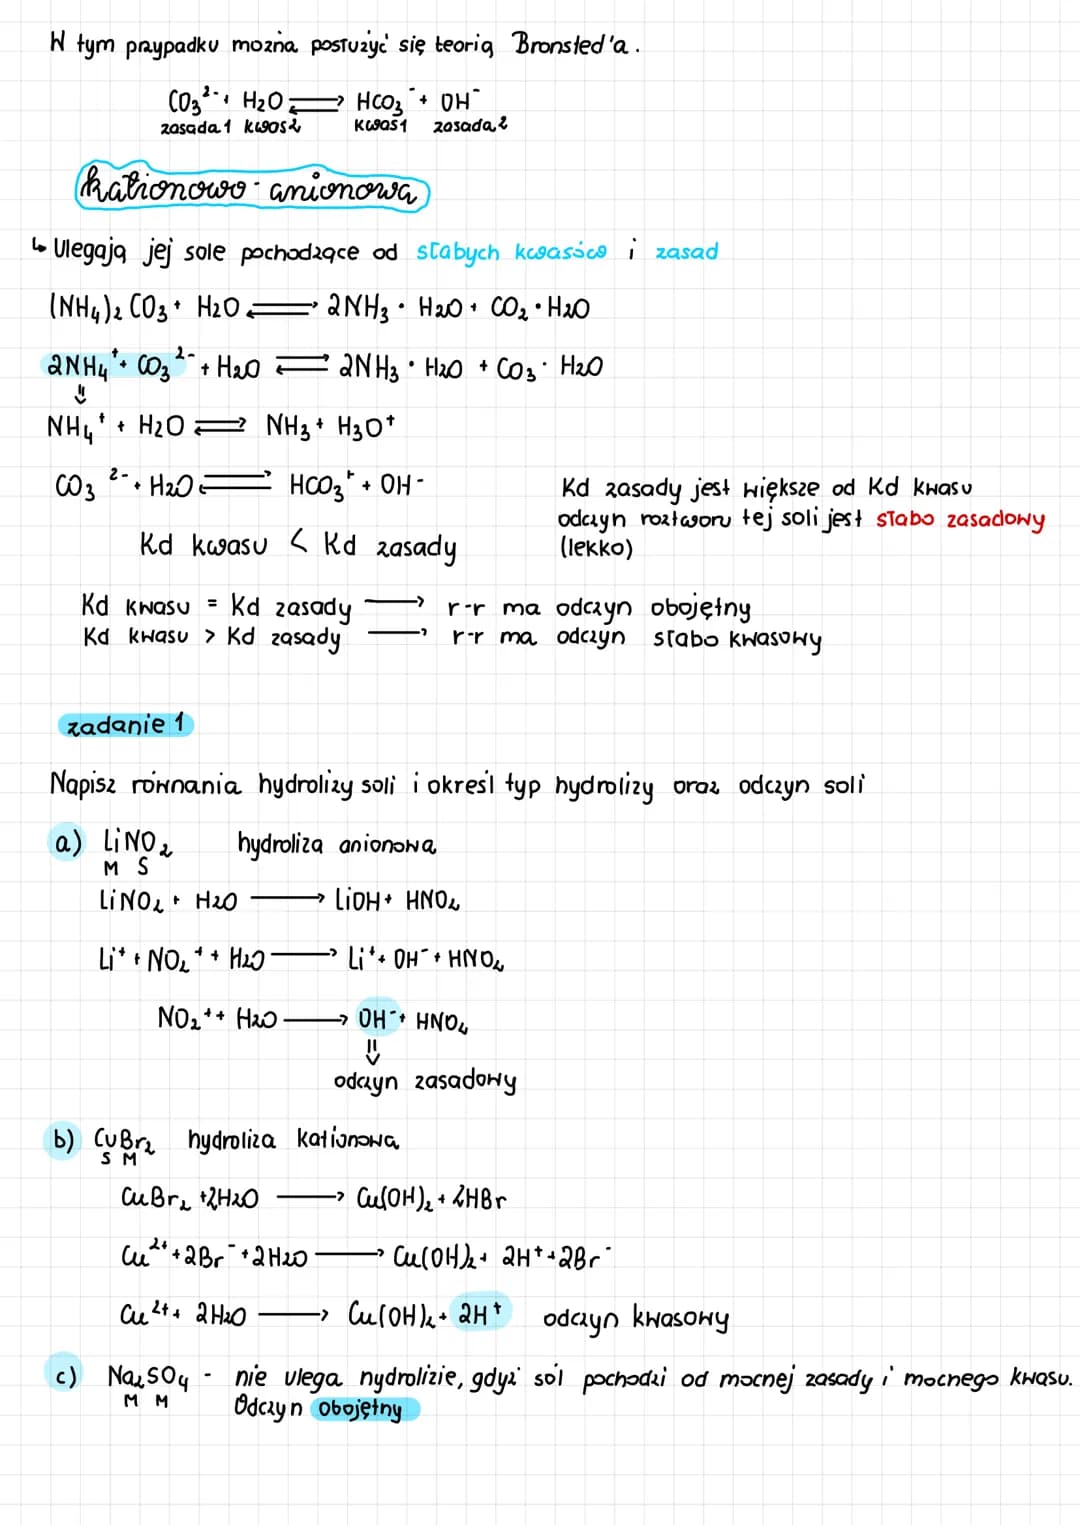 W tym przypadku można posłużyć się teorią Bronsted'a.
CO₃²⁻ + H₂O ⇌ HCO₃⁻ + OH⁻
zasada1 kwas2 kwas1 zasada2
kationowo-anionowa
↳ Ulegają jej sole pochodzące od słabych kwasów i zasad
(NH₄)₂CO₃ + H₂O ⇌ 2NH₃ · H₂O + CO₂ · H₂O
2NH₄⁺ + CO₃²⁻ + H₂O ⇌ 2NH₃ · H₂O + CO₃ · H₂O
⇓
NH₄⁺ + H₂O ⇌ NH₃ + H₃O⁺
CO₃²⁻ + H₂O ⇌ HCO₃⁺ + OH-
Kd kwasu < Kd zasady
Kd zasady jest większe od Kd kwasu
odczyn roztworu tej soli jest słabo zasadowy
(lekko)
Kd kwasu = Kd zasady → r-r ma odczyn obojętny
Kd kwasu > Kd zasady → r-r ma odczyn słabo kwasowy
zadanie 1
Napisz równania hydrolizy soli i określ typ hydrolizy oraz odczyn soli
a) LiNO₂ hydroliza anionowa
M S
LiNO₂ + H₂O → LiOH + HNO₂
Li⁺ + NO₂⁺ + H₂O → Li⁺ + OH⁻ + HNO₂
NO₂⁺ + H₂O → OH⁻ + HNO₂
⇓
odczyn zasadowy
b) CuBr₂ hydroliza kationowa
S M
CuBr₂ + 2H₂O → Cu(OH)₂ + 2HBr
Cu²⁺ + 2Br⁻ + 2H₂O → Cu(OH)₂ + 2H⁺ + 2Br⁻
Cu²⁺ + 2H₂O → Cu(OH)₂ + 2H⁺ odczyn kwasowy
c) Na₂SO₄ - nie ulega hydrolizie, gdyż sól pochodzi od mocnej zasady i mocnego kwasu.
M M
Odczyn obojętny